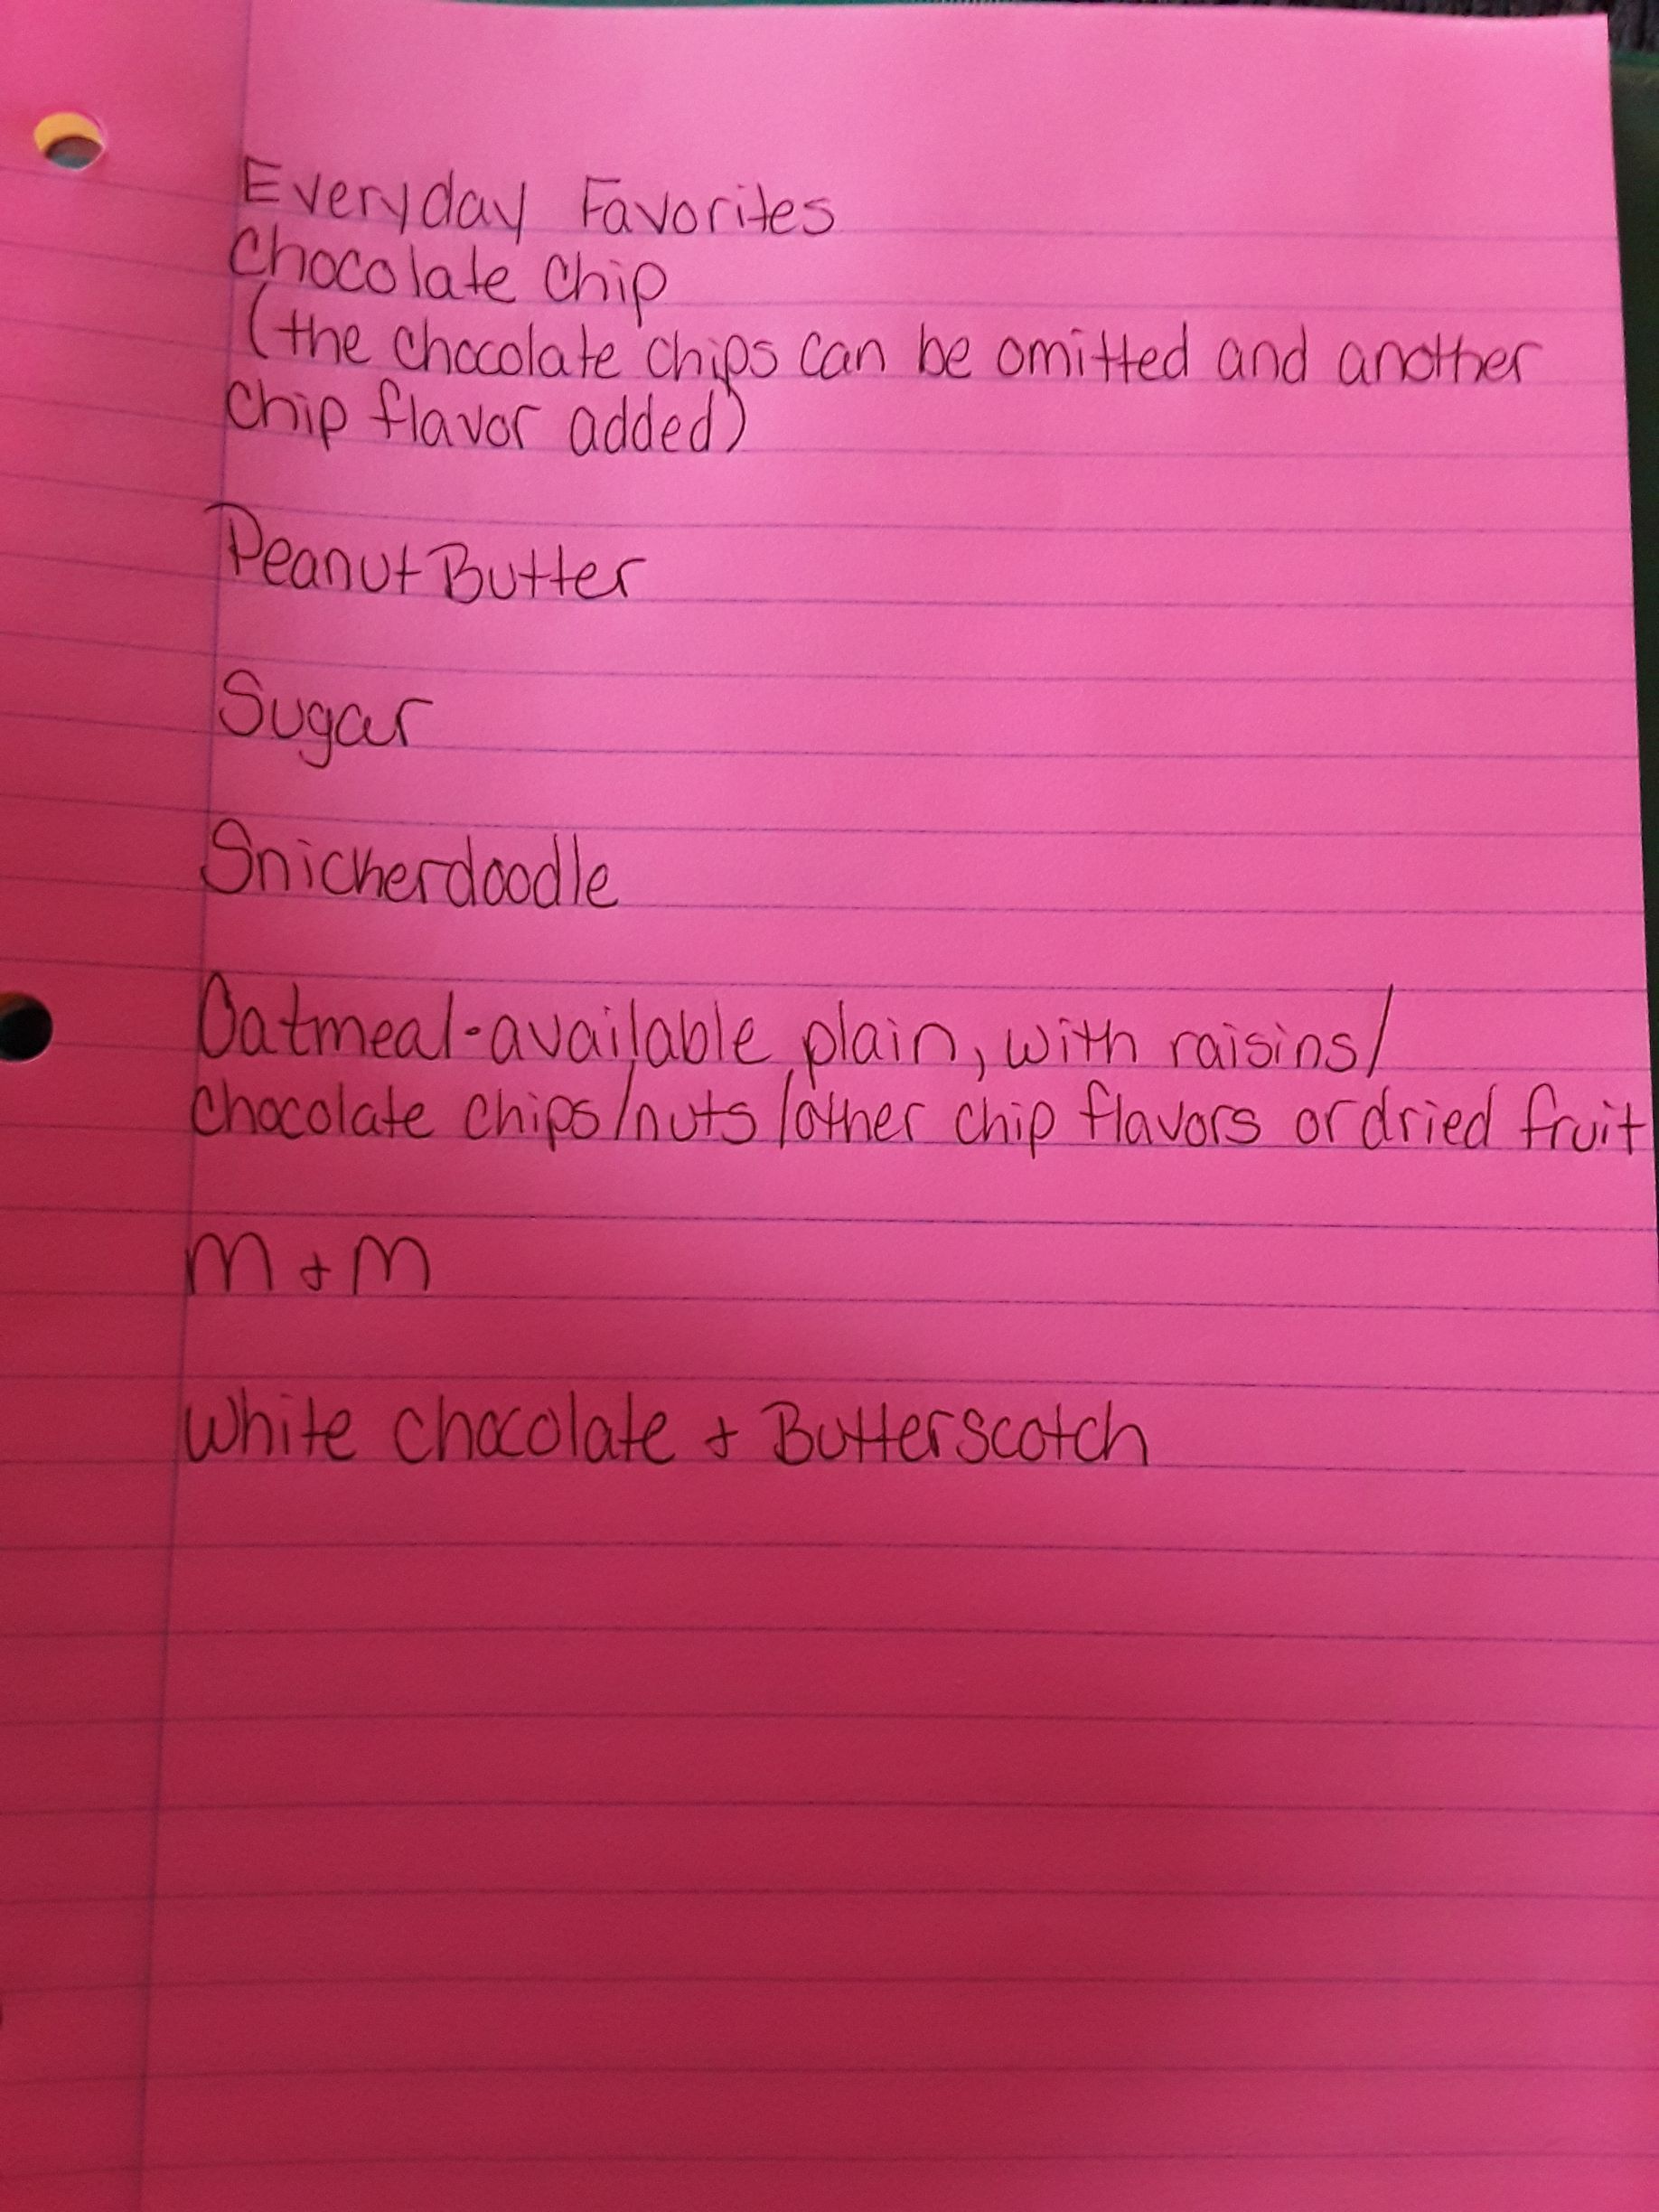 Everyday Favorites
Chocolate Chip
(the chocolate chips can be omitted and another
chip flavor added)
Peanut Butter
Sugar
Snickerdoodle
Oatmeal-available plain, with raisins/
chocolate chips/nuts/other chip flavors or dried fruit
m + m
White chocolate + Butterscotch